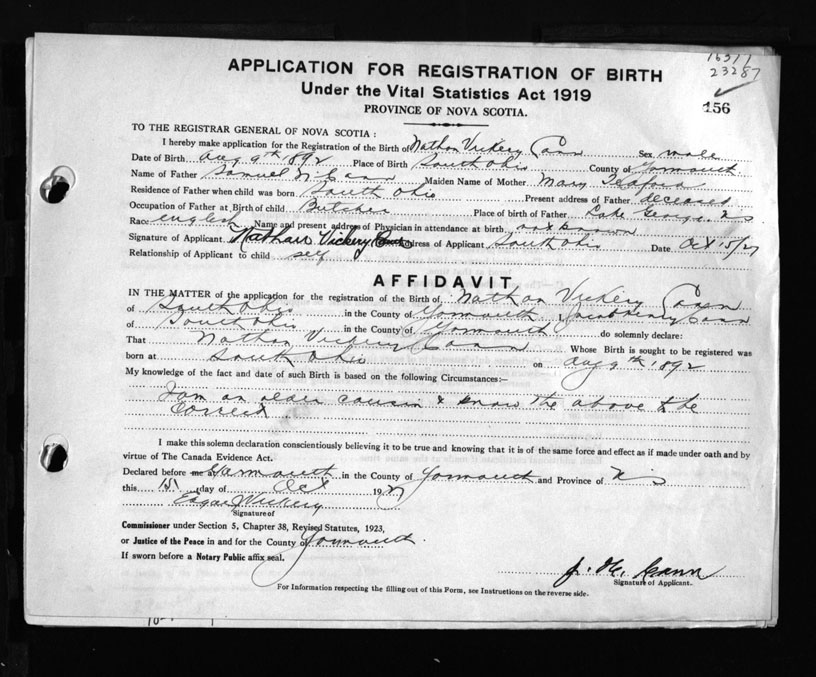 23287
156
APPLICATION FOR REGISTRATION OF BIRTH
Under the Vital Statistics Act 1919
PROVINCE OF NOVA SCOTIA.
TO THE REGISTRAR GENERAL OF NOVA SCOTIA :
I hereby make application for the Registration of the Birth of Nathan Vickery Cann Sex male
Date of Birth Aug 9th 1892 Place of Birth South Ohio County of Yarmouth
Name of Father Samuel N Cann Maiden Name of Mother Mary
Residence of Father when child was born South Ohio Present address of Father deceased
Occupation of Father at Birth of child Butcher Place of birth of Father Lake George N S
Race English Name and present address of Physician in attendance at birth not known
Signature of Applicant Nathan Vickery Cann Address of Applicant South Ohio Date Oct 15/27
Relationship of Applicant to child self
AFFIDAVIT
IN THE MATTER of the application for the registration of the Birth of Nathan Vickery Cann
of South Ohio in the County of Yarmouth Jacob Henry Cann
of South Ohio in the County of Yarmouth do solemnly declare:
That Nathan Vickery Cann Whose Birth is sought to be registered was
born at South Ohio on Aug 9th 1892
My knowledge of the fact and date of such Birth is based on the following Circumstances:—
I am an older cousin & know the above to be
Correct
I make this solemn declaration conscientiously believing it to be true and knowing that it is of the same force and effect as if made under oath and by
virtue of The Canada Evidence Act.
Declared before me at Yarmouth in the County of Yarmouth and Province of N S
this 15 day of Oct 1927
Edgar Vickery
Signature of
Commissioner under Section 5, Chapter 38, Revised Statutes, 1923,
or Justice of the Peace in and for the County of Yarmouth.
If sworn before a Notary Public affix seal.
J. H. Cann
Signature of Applicant.
For Information respecting the filling out of this Form, see Instructions on the reverse side.